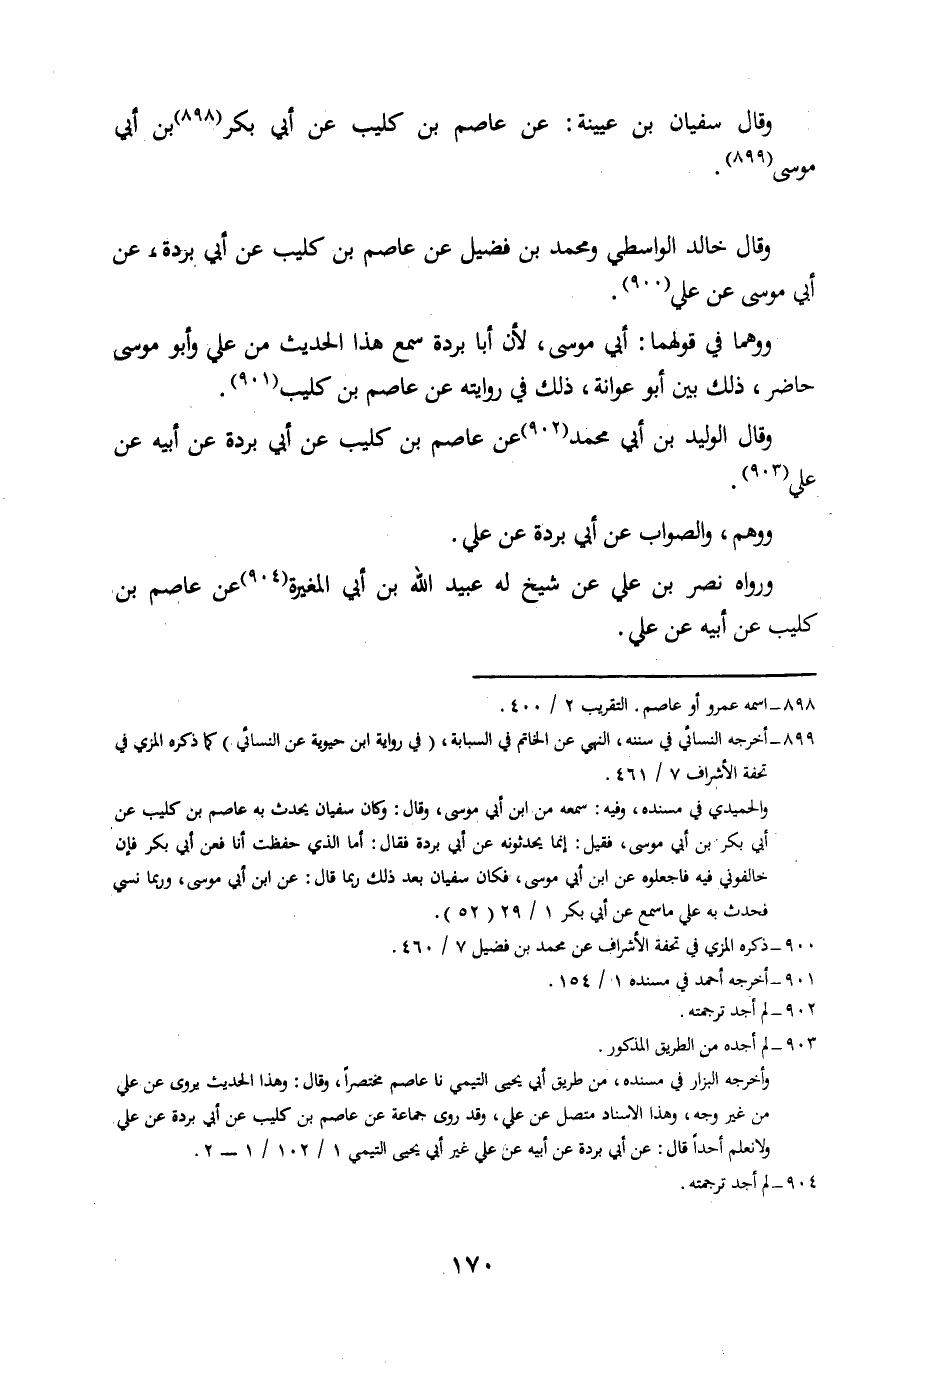 وقال سفيان بن عيينة : عن عاصم بن كليب عن أبي بكر(٨٩٨)بن أبي
موسى(٨٩٩) .
وقال خالد الواسطي ومحمد بن فضيل عن عاصم بن كليب عن أبي بردة، عن
أبي موسى عن علي(٩٠٠) .
ووهما في قولهما : أبي موسى ، لأن أبا بردة سمع هذا الحديث من علي وأبو موسى
حاضر ، ذلك بين أبو عوانة ، ذلك في روايته عن عاصم بن كليب(٩٠١) .
وقال الوليد بن أبي محمد(٩٠٢)عن عاصم بن كليب عن أبي بردة عن أبيه عن
علي(٩٠٣) .
ووهم ، والصواب عن أبي بردة عن علي .
ورواه نصر بن علي عن شيخ له عبيد الله بن أبي المغيرة(٩٠٤)عن عاصم بن
كليب عن أبيه عن علي .
٨٩٨ــ اسمه عمرو أو عاصم . التقريب ٢ / ٤٠٠ .
٨٩٩ــ أخرجه النسائي في سننه ، النهي عن الخاتم في السبابة ، ( في رواية ابن حيوية عن النسائي ) كما ذكره المزي في
تحفة الأشراف ٧ / ٤٦١ .
والحميدي في مسنده ، وفيه : سمعه من ابن أبي موسى ، وقال : وكان سفيان يحدث به عاصم بن كليب عن
أبي بكر بن أبي موسى ، فقيل : إنما يحدثونه عن أبي بردة فقال : أما الذي حفظت أنا فعن أبي بكر فإن
خالفوني فيه فاجعلوه عن ابن أبي موسى ، فكان سفيان بعد ذلك ربما قال : عن ابن أبي موسى ، وربما نسي
فحدث به علي ماسمع عن أبي بكر ١ / ٢٩ ( ٥٢ ) .
٩٠٠ــ ذكره المزي في تحفة الأشراف عن محمد بن فضيل ٧ / ٤٦٠ .
٩٠١ــ أخرجه أحمد في مسنده ١ / ١٥٤ .
٩٠٢ــ لم أجد ترجمته .
٩٠٣ــ لم أجده من الطريق المذكور .
وأخرجه البزار في مسنده ، من طريق أبي يحيى التيمي نا عاصم مختصراً ، وقال : وهذا الحديث يروى عن علي
من غير وجه ، وهذا الاسناد متصل عن علي ، وقد روى جماعة عن عاصم بن كليب عن أبي بردة عن علي
ولانعلم أحداً قال : عن أبي بردة عن أبيه عن علي غير أبي يحيى التيمي ١ / ١٠٢ / ١ ــ ٢ .
٩٠٤ــ لم أجد ترجمته .
١٧٠